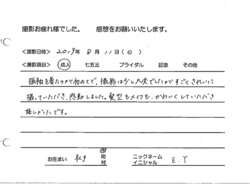 撮影お疲れ様でした。 感想をお願いいたします。
＜撮影日時＞ 2019年 8月 11日(日)
＜撮影項目＞ 成人 七五三 ブライダル 記念 その他
振袖を着たのは初めてで、撮影は少し大変でしたがすごくきれいに
撮っていただき、感動しました。髪型もメイクも、かわいくしていただき
嬉しかったです。
お住まい 市 町 村
ニックネーム イニシャル E.Y